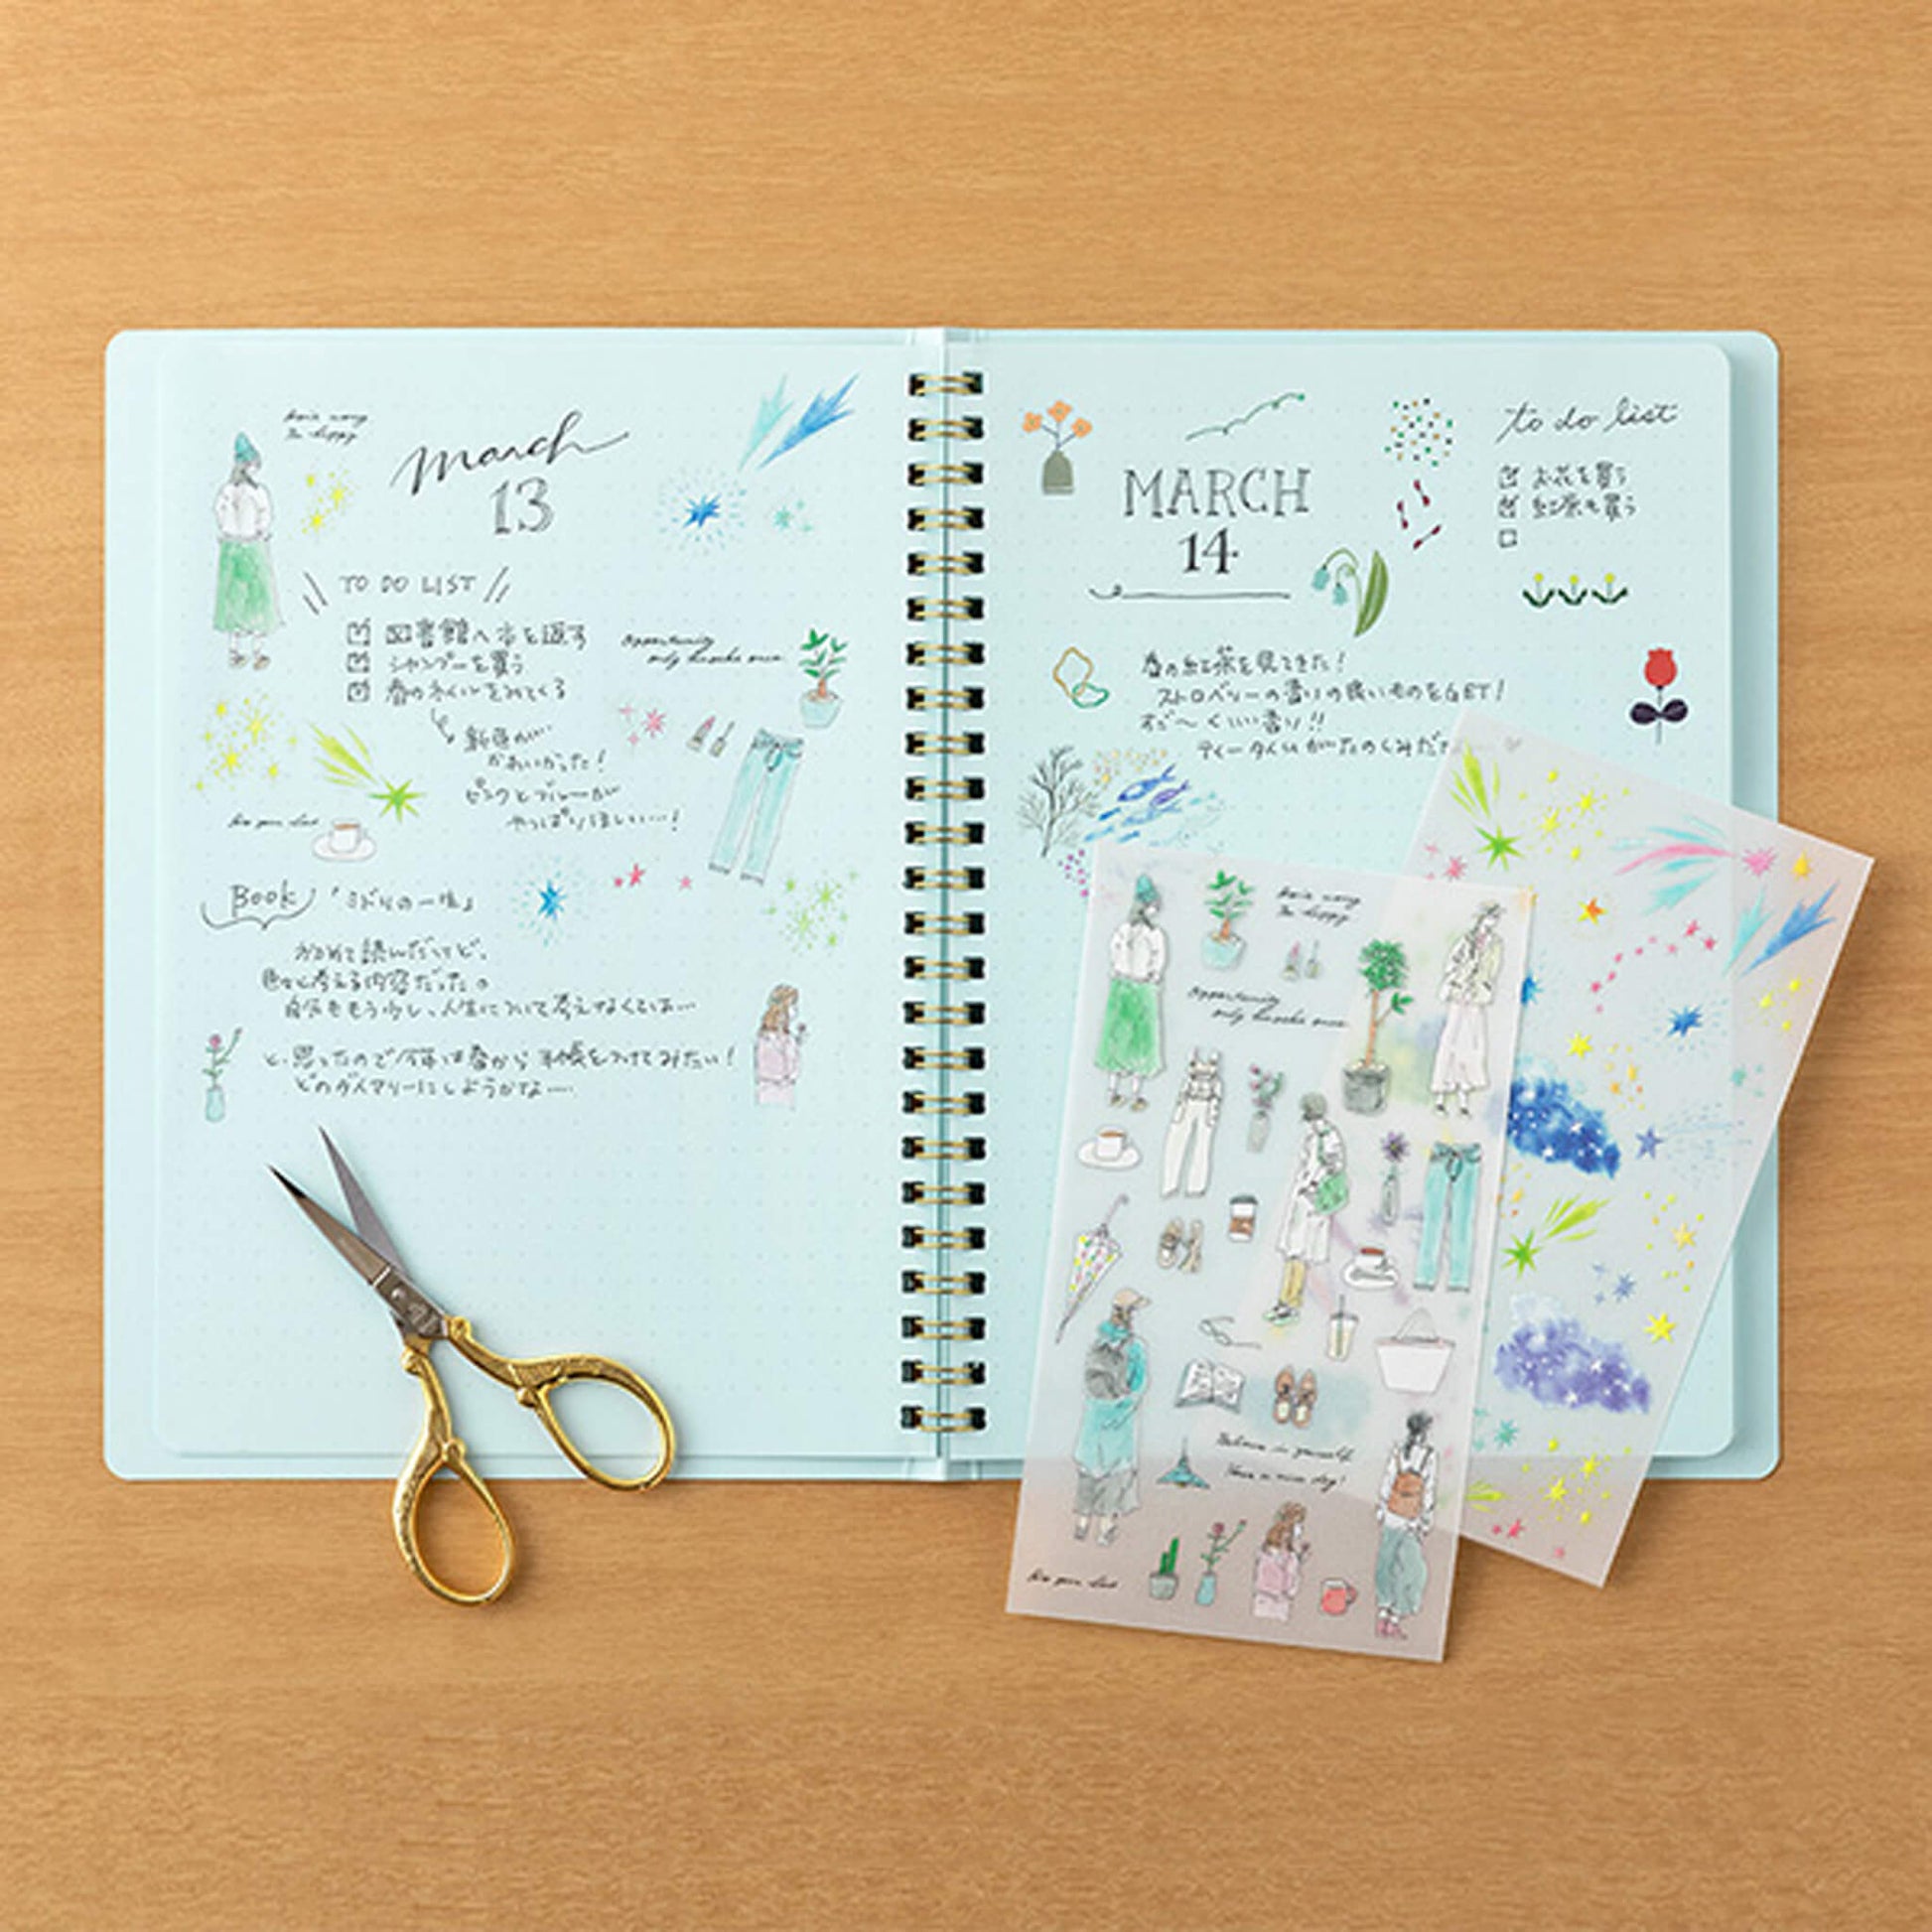 March
13
TO DO LIST
図書館へ本を返す
シャンプーを買う
春のネイルをみてくる
Opportunity
only knocks once
新色が…
かわいかった!
ピンクとブルーが
やっぱりほしい…!
Book 「ミドリの一生」
読んだけど、
色々と考える内容だった。
自分ももう少し、人生について考えなくちゃ…
と、思ったので今年は春から手帳をつけてみたい!
どのダイアリーにしようかな……
MARCH
14
to do list
お花を買う
紅茶を買う
春の紅茶を見てきた!
ストロベリーの香りの良いものをGET!
すご〜くいい香り!!
ティータイムがたのしみだ
Opportunity
only knocks once
Believe in yourself
Have a nice day!